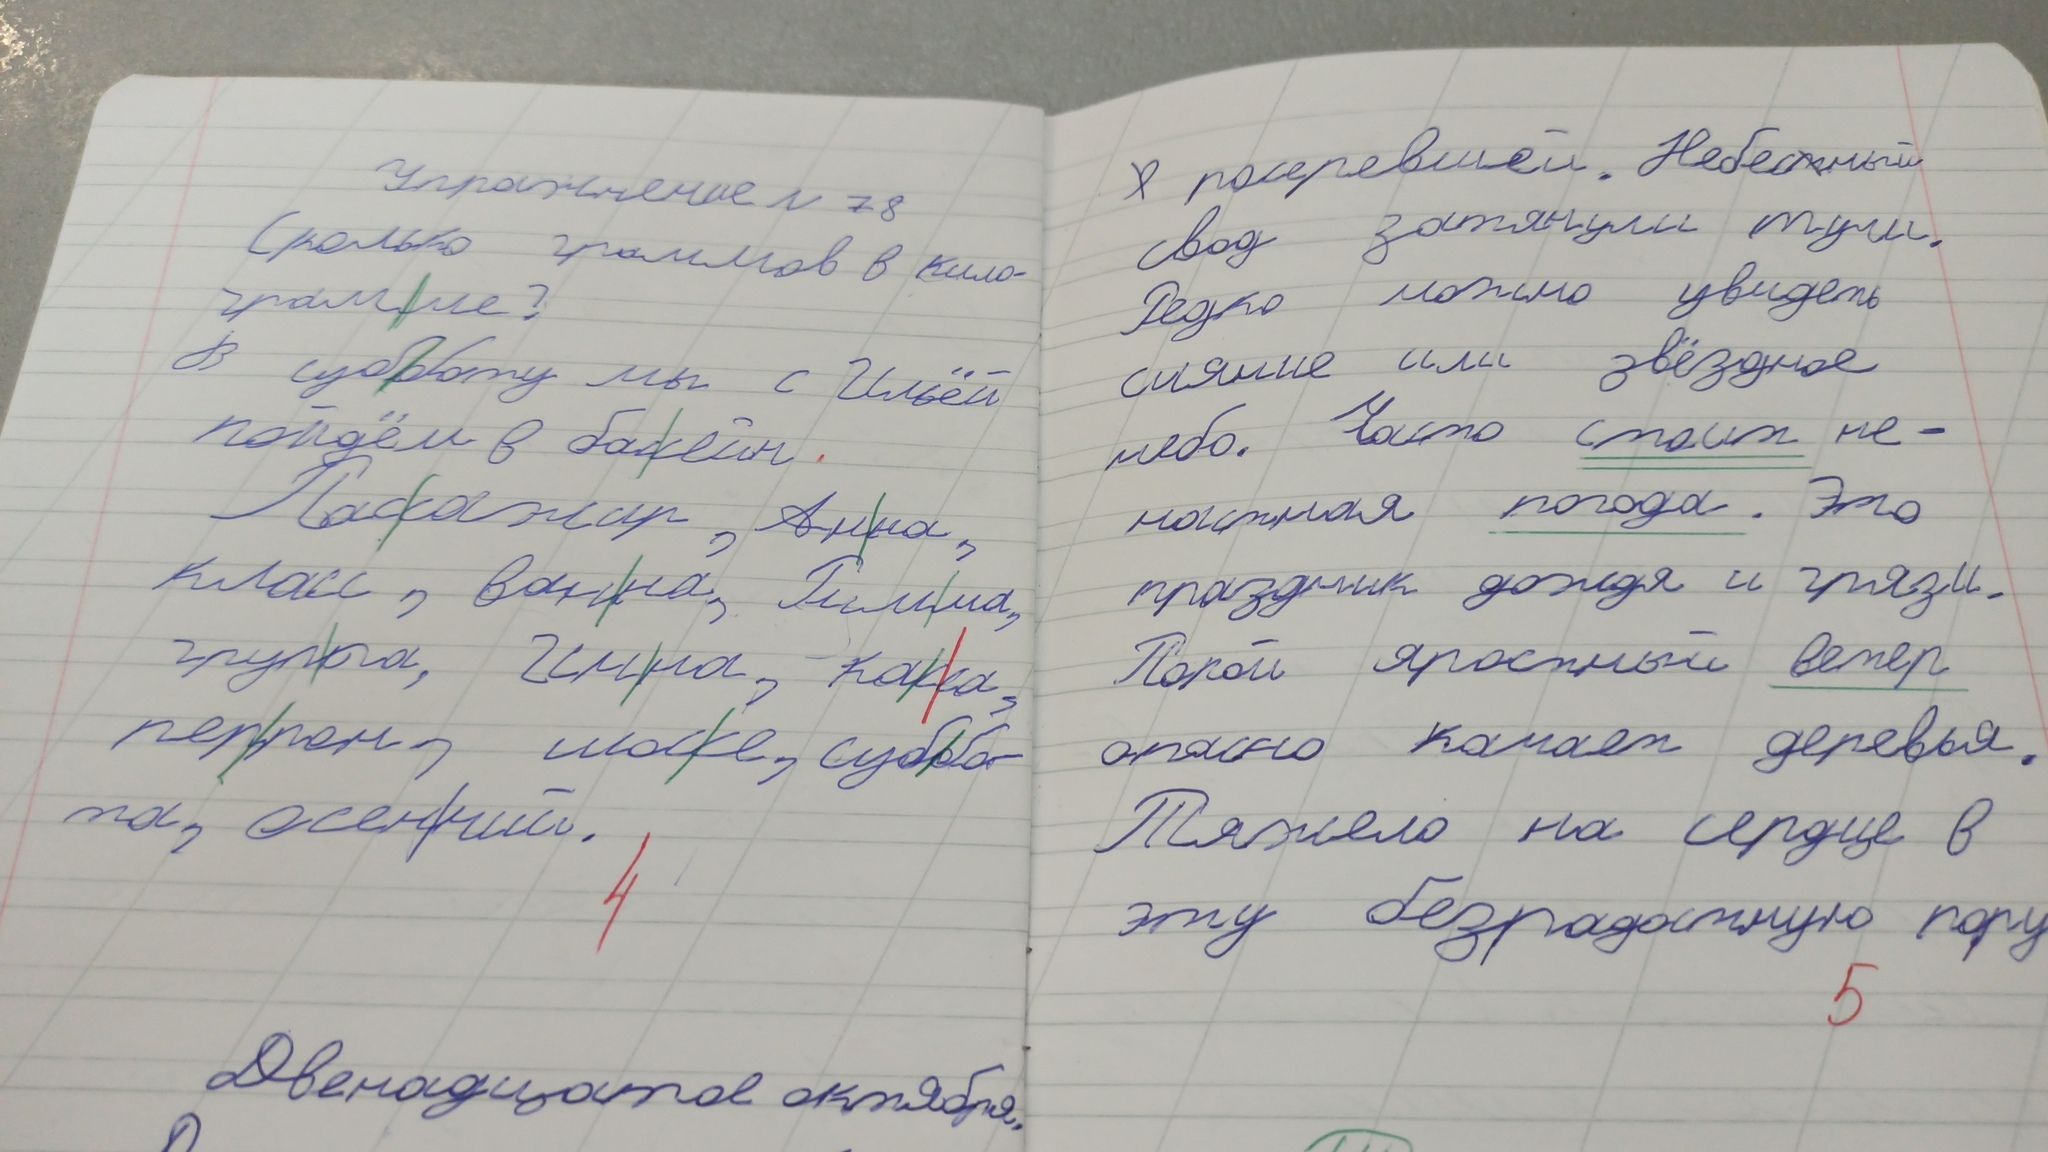 Упражнение N 78
Сколько граммов в кило-
грамме?
В субботу мы с Ильёй
пойдём в бассейн.
Пассажир, Анна,
класс, ванна, Римма,
группа, Инна, касса,
перрон, шоссе, суббо-
та, осенний.
4
Двенадцатое октября.
посеревшей. Небесный
свод затянули тучи.
Редко можно увидеть
сияние или звёздное
небо. Часто стоит не-
настная погода. Это
праздник дождя и грязи.
Порой яростный ветер
опасно качает деревья.
Тяжело на сердце в
эту безрадостную пору
5